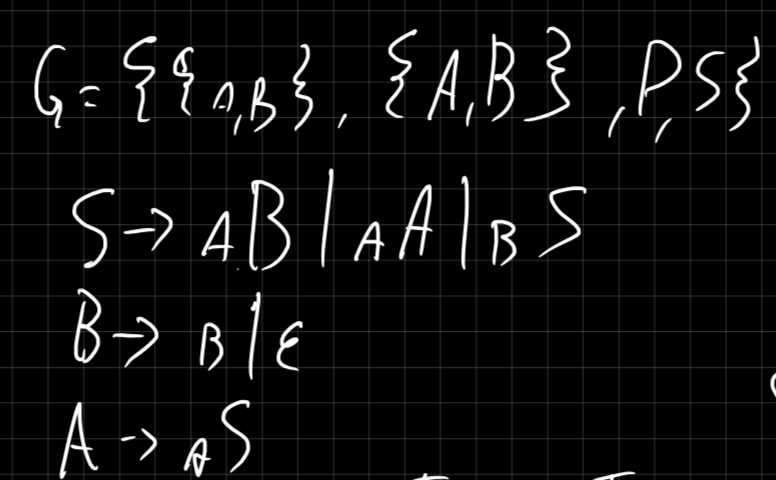 G={{A,B}, {A,B}, P, S}
S→AB|AA|BS
B→B|ε
A→AS